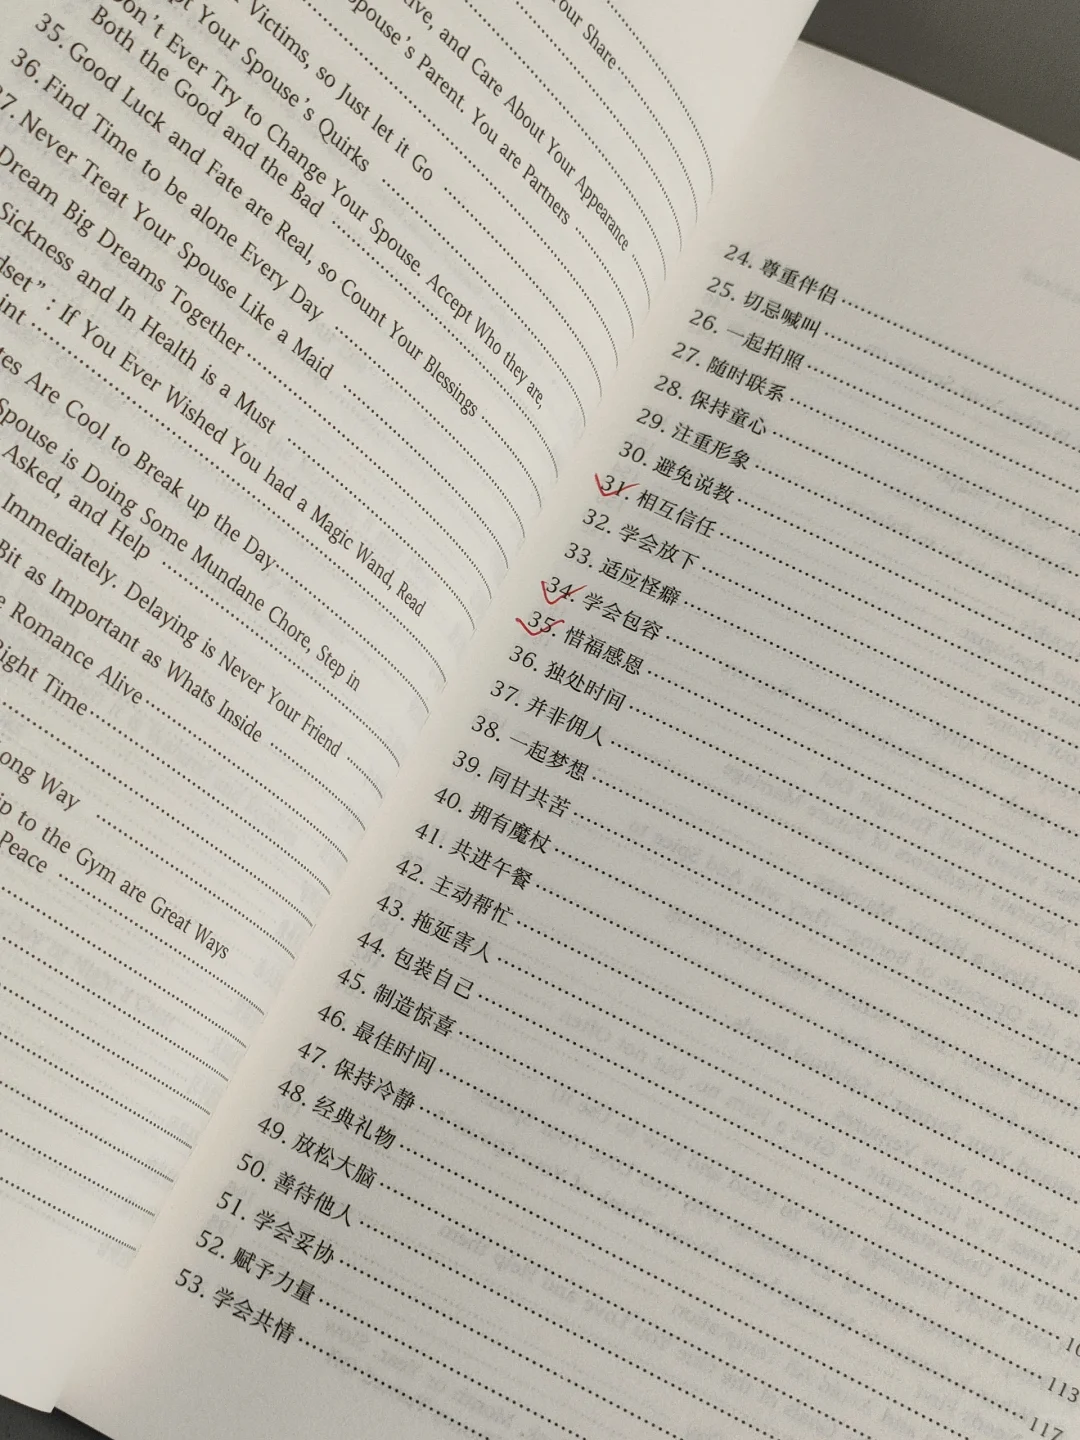 Your Share
ive, and Care About Your Appearance
Spouse's Parent. You are Partners
Victims, so Just let it Go
Your Spouse's Quirks
Don't Ever Try to Change Your Spouse. Accept Who they are,
Both the Good and the Bad
35. Good Luck and Fate are Real, so Count Your Blessings
36. Find Time to be alone Every Day
37. Never Treat Your Spouse Like a Maid
Dream Big Dreams Together
Sickness and In Health is a Must
dset": If You Ever Wished You had a Magic Wand, Read
int
tes Are Cool to Break up the Day
Spouse is Doing Some Mundane Chore, Step in
Asked, and Help
Immediately. Delaying is Never Your Friend
Bit as Important as Whats Inside
Romance Alive
Right Time
ong Way
ip to the Gym are Great Ways
Peace
24. 尊重伴侣
25. 切忌喊叫
26. 一起拍照
27. 随时联系
28. 保持童心
29. 注重形象
30. 避免说教
31. 相互信任
32. 学会放下
33. 适应怪癖
34. 学会包容
35. 惜福感恩
36. 独处时间
37. 并非佣人
38. 一起梦想
39. 同甘共苦
40. 拥有魔杖
41. 共进午餐
42. 主动帮忙
43. 拖延害人
44. 包装自己
45. 制造惊喜
46. 最佳时间
47. 保持冷静
48. 经典礼物
49. 放松大脑
50. 善待他人
51. 学会妥协
52. 赋予力量 113
53. 学会共情 117